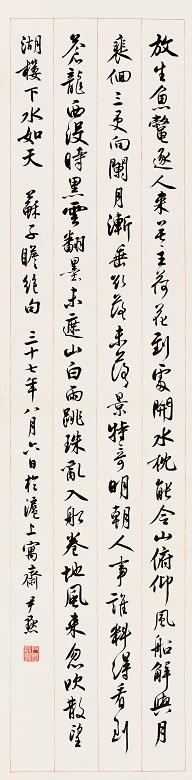 放生魚鱉逐人來無主荷花到處開水枕能令山俯仰風船解與月
裴佪三更向闌月漸垂欲落未落景特奇明朝人事誰料得看到
蒼龍西沒時黑雲翻墨未遮山白雨跳珠亂入船卷地風來忽吹散望
湖樓下水如天 蘇子瞻絕句 三十七年八月六日於滬上寓齋 尹默